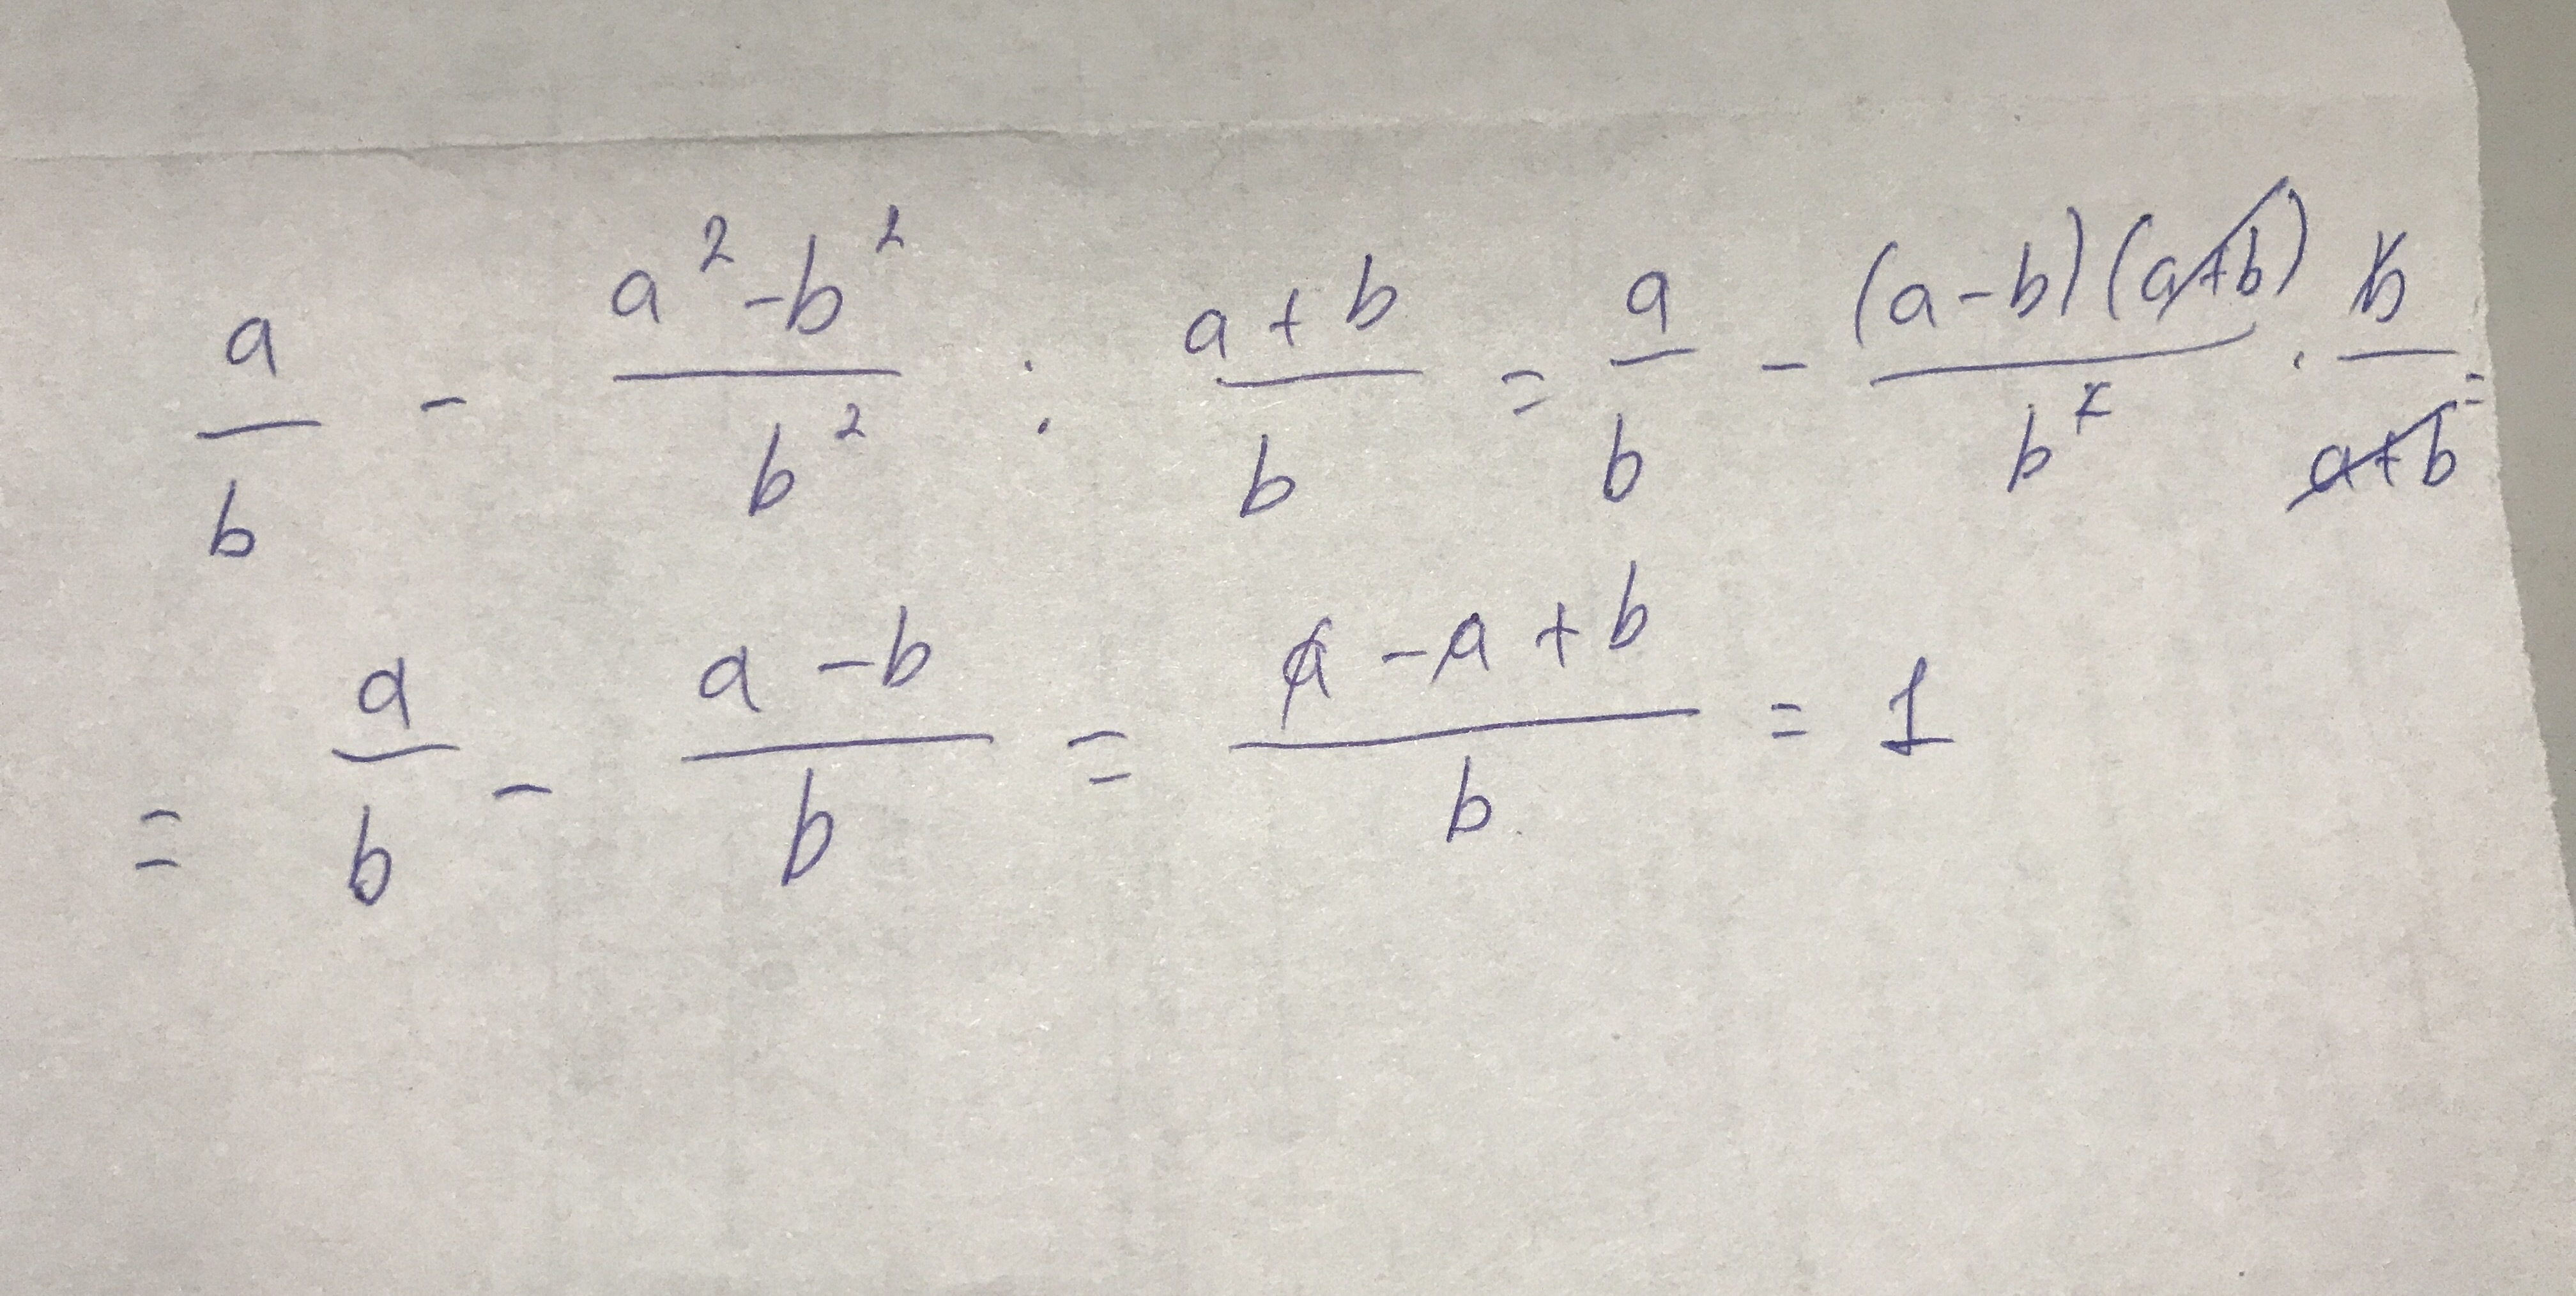 a/b - (a² - b²)/b² : (a + b)/b = a/b - ((a - b)(a + b))/b² · b/(a + b) =
= a/b - (a - b)/b = (a - a + b)/b = 1